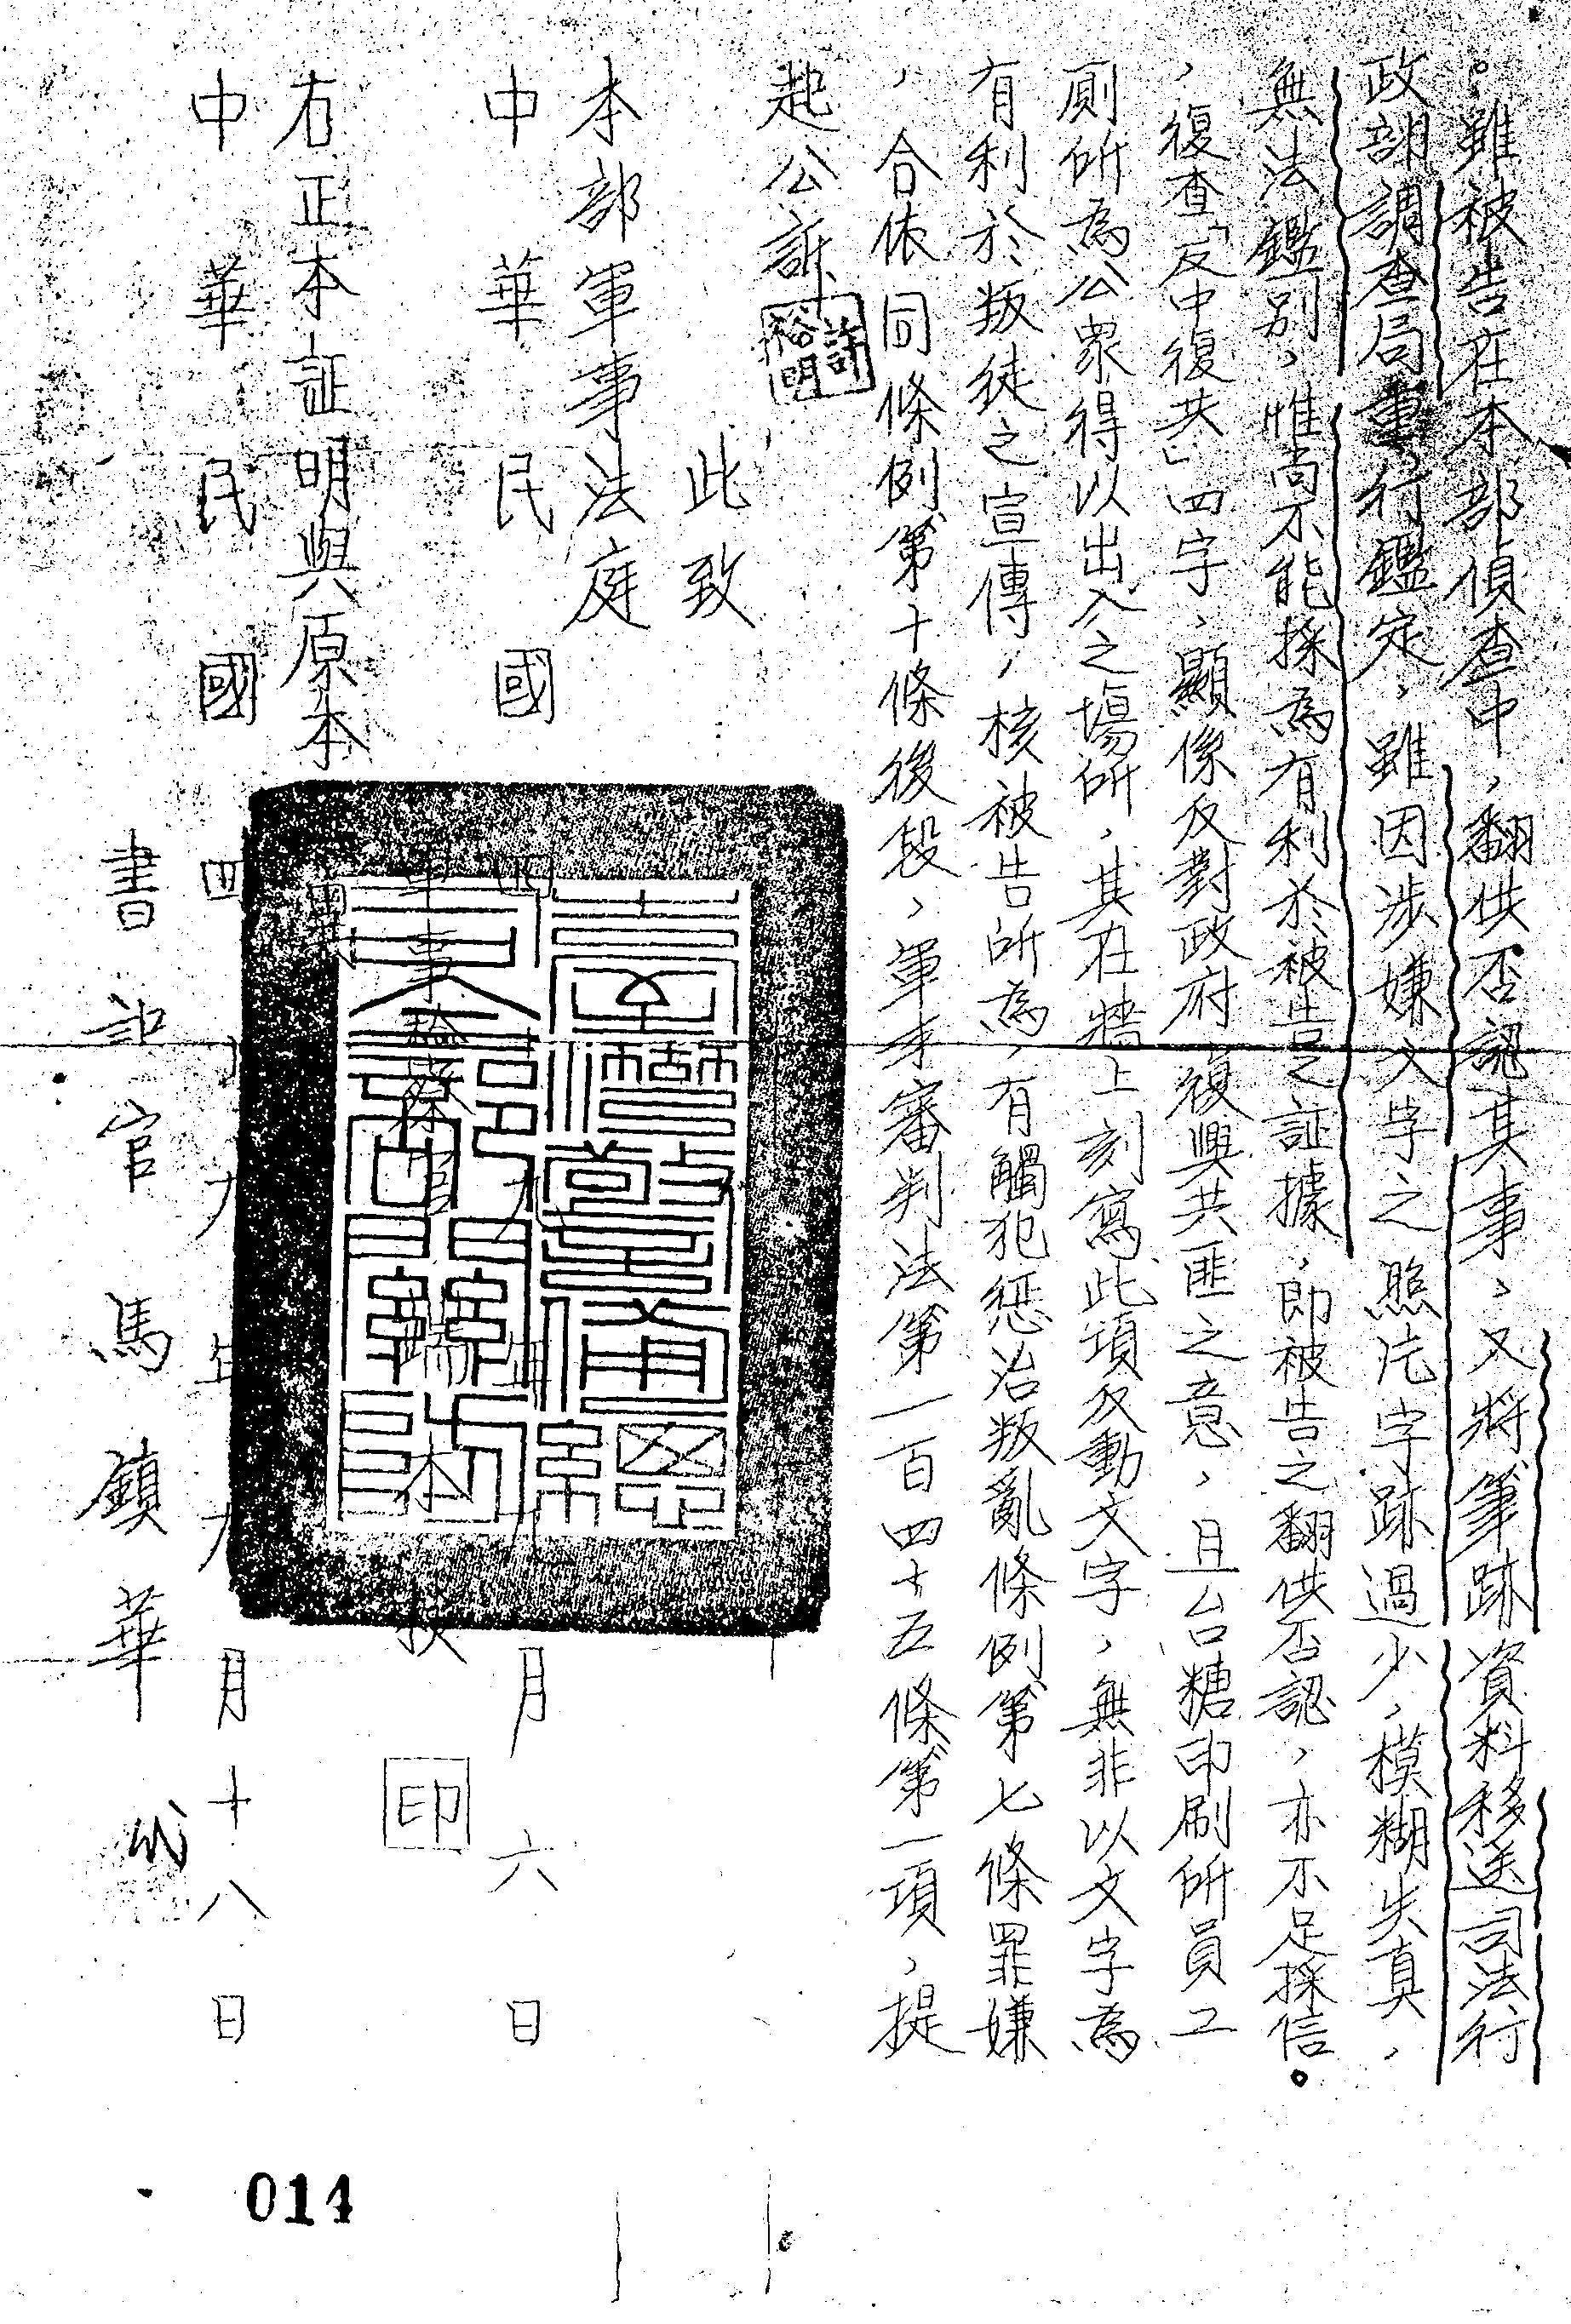 。雖被告在本部偵查中，翻供否認其事，又將筆跡資料移送司法行
政部調查局重行鑑定，雖因涉嫌文字之照片字跡過少，模糊失真，
無法鑑別，惟尚不能採為有利於被告之証據，即被告之翻供否認，亦不足採信。
，復查「反中復共」四字，顯係反對政府，復興共匪之意，且台糖印刷所員工
厠所為公眾得以出入之場所，其在牆上刻寫此項反動文字，無非以文字為
有利於叛徒之宣傳，核被告所為，有觸犯惩治叛亂條例第七條罪嫌
，合依同條例第十條後段，軍事審判法第一百四十五條第一項，提
起公訴
許裕明
此致
本部軍事法庭
中華民國四九年九月六日
軍事檢察官端木
印
右正本証明與原本
中華民國四九年九月十八日
書記官馬鎮華
014